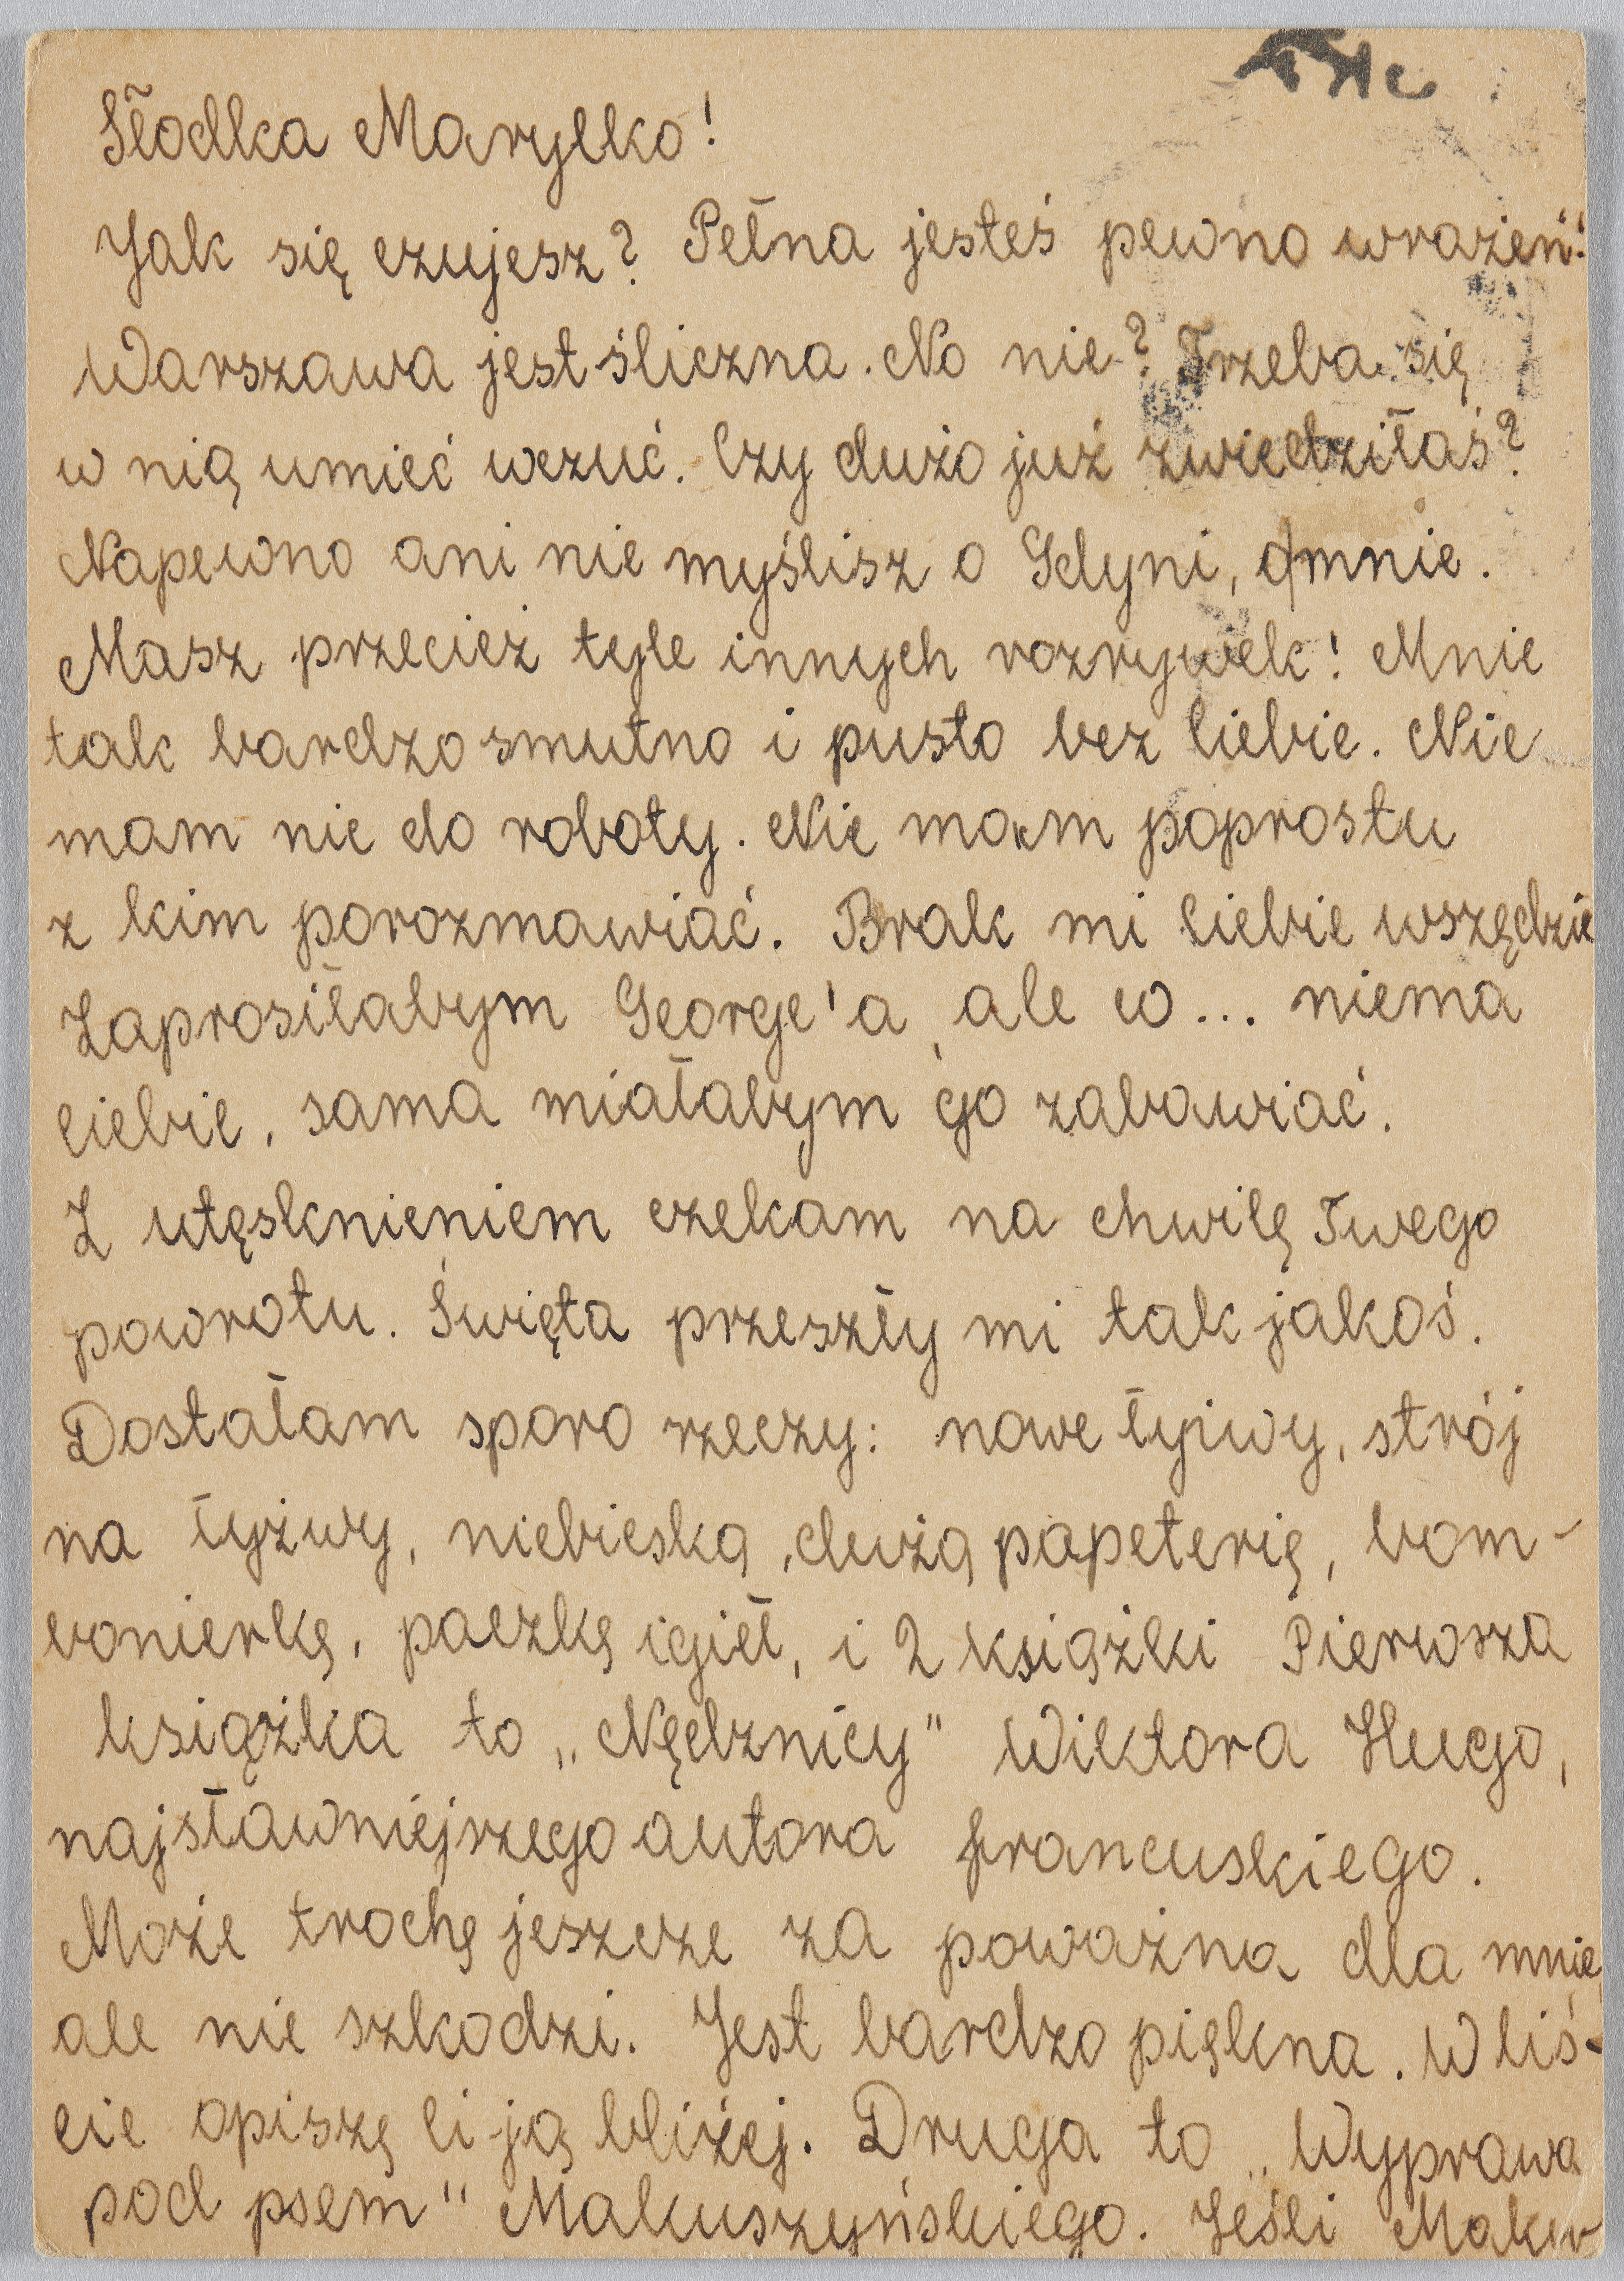 Słodka Marylko!
Jak się czujesz? Pełna jesteś pewno wrażeń!
Warszawa jest śliczna. No nie? Trzeba się
w nią umieć wczuć. Czy dużo już zwiedziłaś?
Napewno ani nie myślisz o Gdyni, o mnie.
Masz przecież tyle innych rozrywek! Mnie
tak bardzo smutno i pusto bez Ciebie. Nie
mam nic do roboty. Nie mam poprostu
z kim porozmawiać. Brak mi Ciebie wszędzie
Zaprosiłabym George'a, ale co... niema
Ciebie, sama miałabym go zabawiać.
Z utęsknieniem czekam na chwilę Twego
powrotu. Święta przeszły mi tak jakoś.
Dostałam sporo rzeczy: nowe łyżwy, strój
na łyżwy, niebieską, dużą papeterię, bom-
bonierkę, paczkę igieł, i 2 książki Pierwsza
książka to „Nędznicy" Wiktora Hugo,
najsławniejszego autora francuskiego.
Może trochę jeszcze za poważna dla mnie,
ale nie szkodzi. Jest bardzo piękna. W liś-
cie opiszę Ci ją bliżej. Druga to „Wyprawa
pod psem" Makuszyńskiego. Jeśli Maku